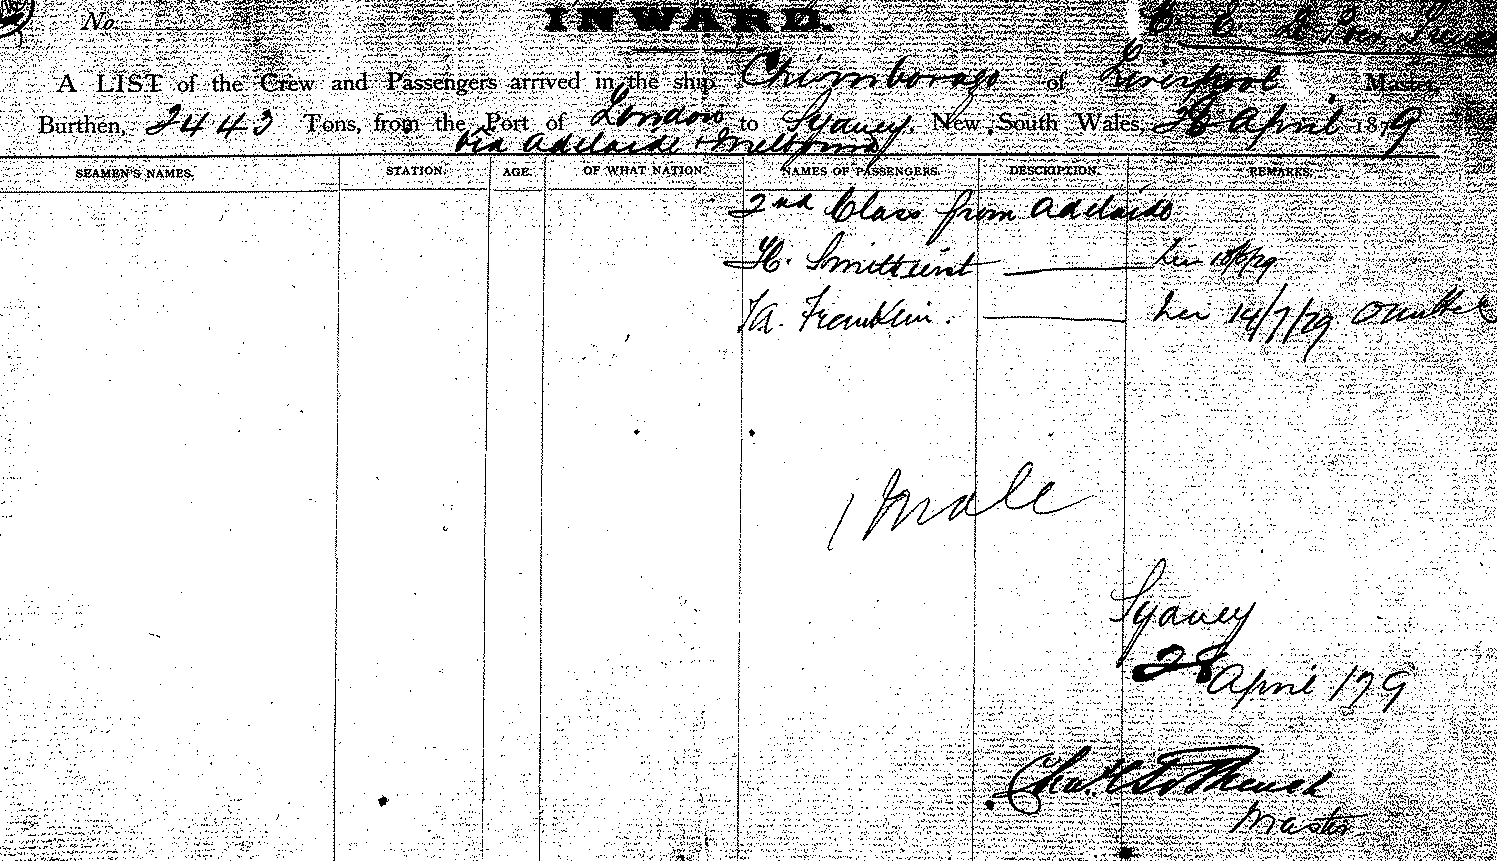 No.
INWARD.
A LIST of the Crew and Passengers arrived in the ship Chimborazo of Liverpool, Master,
Burthen, 2443 Tons, from the Port of London to Sydney, New South Wales, 28 April 1879
via Adelaide & Melbourne
SEAMEN'S NAMES. STATION. AGE. OF WHAT NATION. NAMES OF PASSENGERS. DESCRIPTION. REMARKS.
2nd Class from Adelaide
H. Smithurst
A. Franklin.
14/7/79
1 Male
Sydney
28 April /79
Master